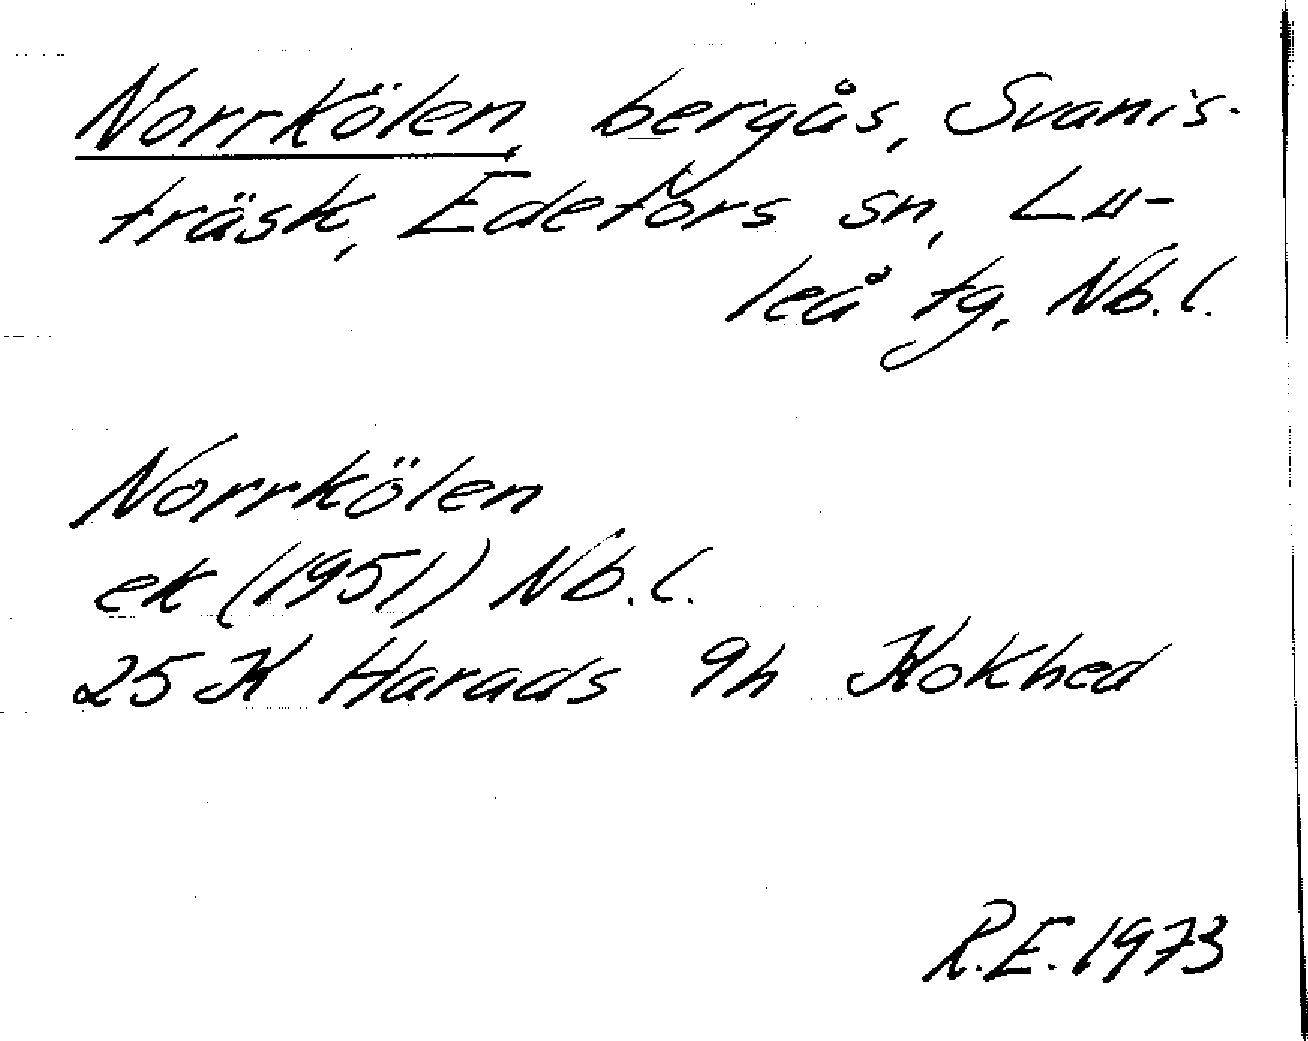 Norrkölen, bergås, Svanis-
träsk, Edefors sn, Lu-
leå tg, Nb.l.
Norrkölen
ek (1951) Nb.l.
25 K Harads 9h Kokhed
R.E. 1973